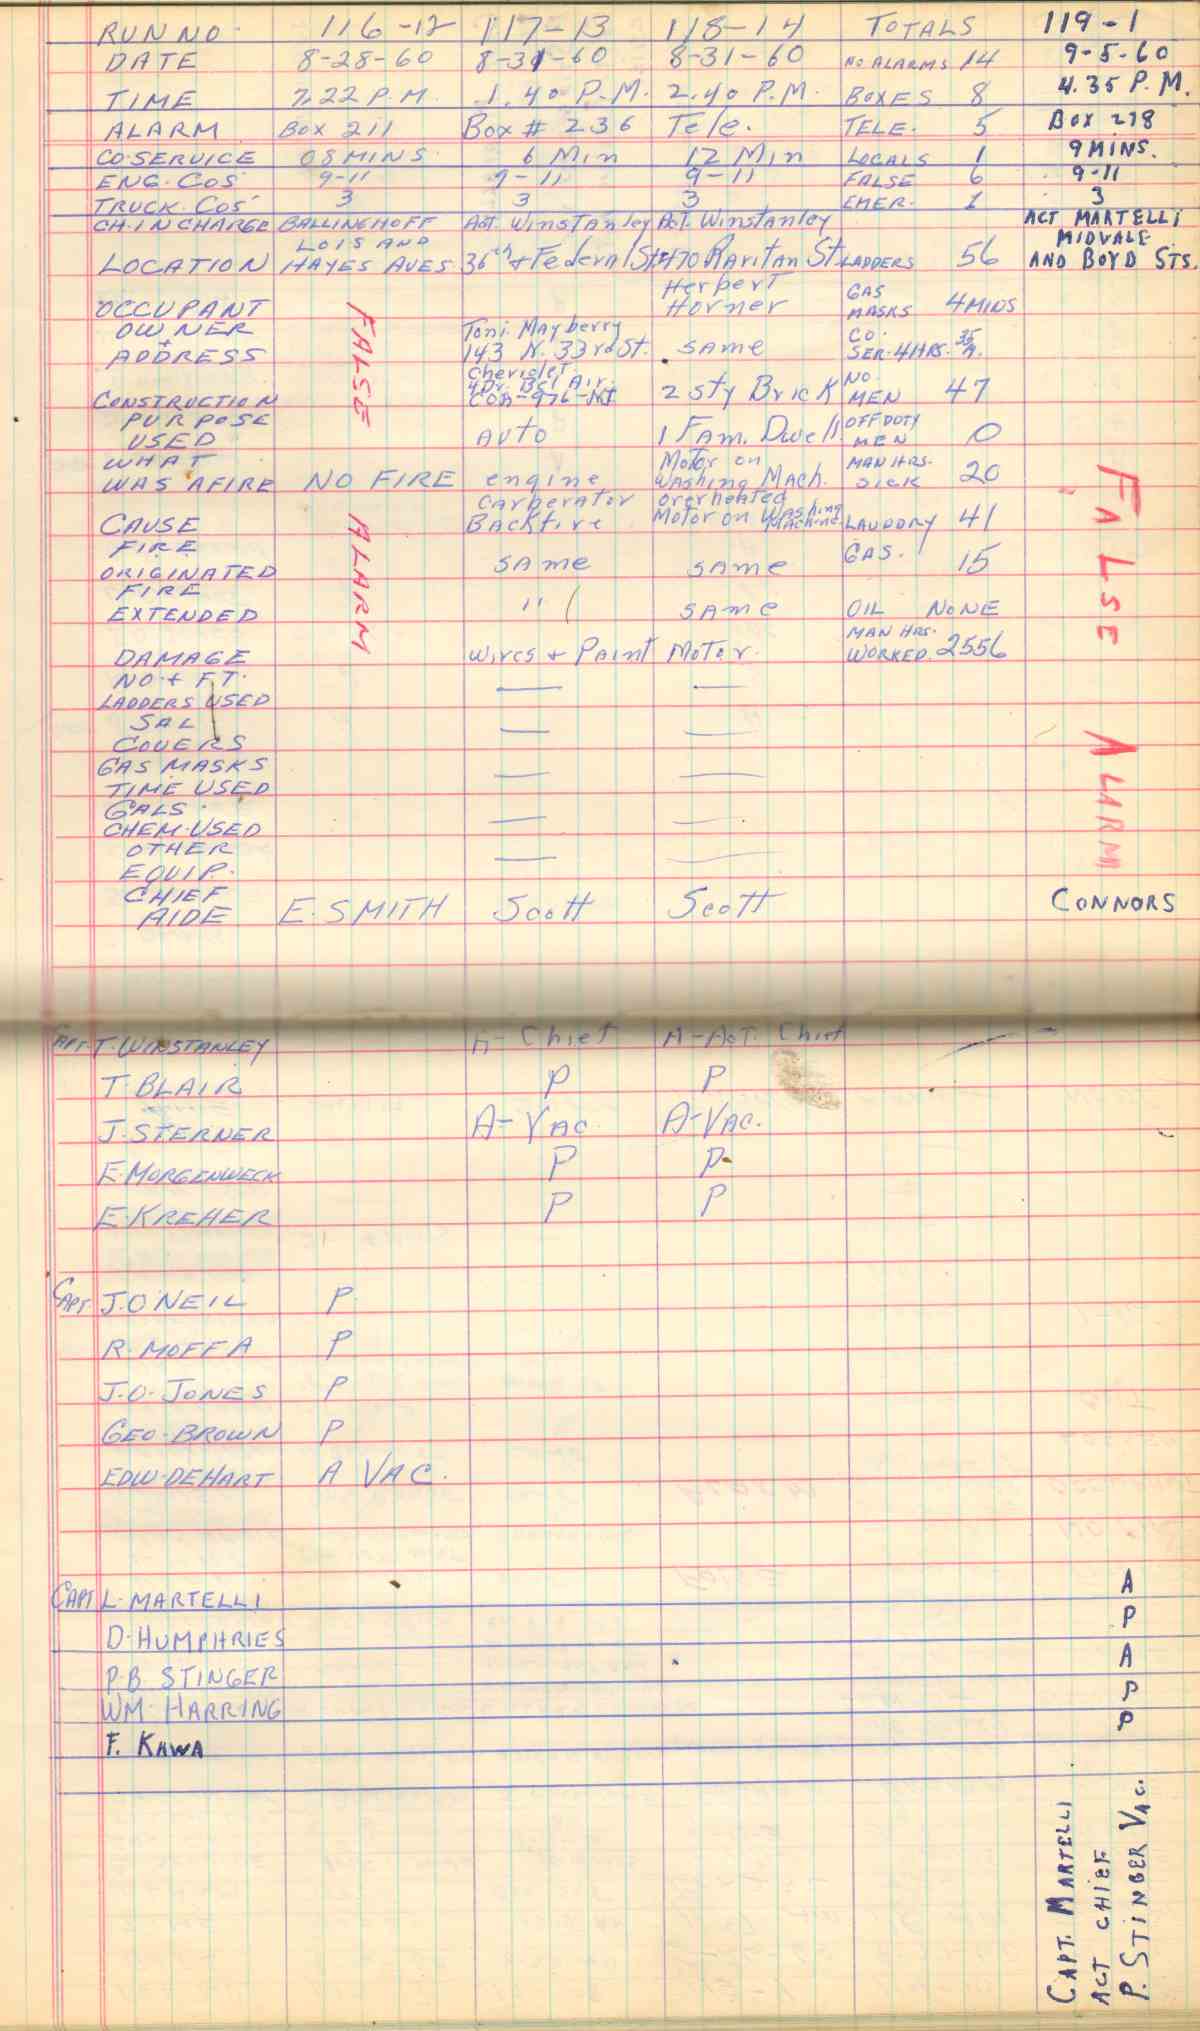 RUN NO. 116-12 117-13 118-14 TOTALS 119-1
DATE 8-28-60 8-31-60 8-31-60 NO ALARMS 14 9-5-60
TIME 7.22 P.M. 1.40 P.M. 2.40 P.M. BOXES 8 4.35 P.M.
ALARM Box 211 Box # 236 Tele. TELE. 5 Box 278
CO. SERVICE 08 MINS 6 Min 12 Min LOCALS 1 9 MINS.
ENG. COS 9-11 9-11 9-11 FALSE 6 9-11
TRUCK. COS' 3 3 3 EMER. 1 3
CH. IN CHARGE BALLINGHOFF Act. Winstanley Act. Winstanley ACT MARTELLI
LOIS AND MIDVALE
LOCATION HAYES AVES 36th + Federal Sts 470 Raritan St LADDERS 56 AND BOYD STS.
OCCUPANT Herbert Horner GAS MASKS 4 MINS
OWNER + ADDRESS Toni Mayberry 143 N. 33rd St. SAME CO. SER. 4 HRS.
CONSTRUCTION Chevrolet 4 Dr. Bel Air 2 sty Brick NO. MEN 47
PURPOSE USED AUTO 1 FAM. Dwell OFF DUTY MEN 0
WHAT WAS AFIRE NO FIRE engine Motor on Washing Mach. MAN HRS. SICK 20
CAUSE Carberator Backfire overheated Motor on Washing Machine LAUNDRY 41
FIRE ORIGINATED SAME SAME GAS. 15
FIRE EXTENDED " SAME OIL NONE
DAMAGE wires + Paint Motor. MAN HRS. WORKED. 2556
NO. + FT. LADDERS USED — —
SAL COVERS — —
GAS MASKS TIME USED — —
GALS. CHEM. USED — —
OTHER EQUIP. — —
CHIEF AIDE E. SMITH Scott Scott CONNORS
FALSE ALARM
FALSE ALARM
CAPT. T. WINSTANLEY A- Chief A-Act. Chief
T. BLAIR P P
J. STERNER A- VAC A-VAC.
E. MORGENWECK P P
E. KREHER P P
CAPT. J. O NEIL P
R. MOFFA P
J. O. JONES P
GEO. BROWN P
EDW. DEHART A VAC.
CAPT L. MARTELLI A
D. HUMPHRIES P
P. B. STINGER A
WM. HARRING P
F. KAWA P
CAPT. MARTELLI
ACT CHIEF
P. STINGER VAC.